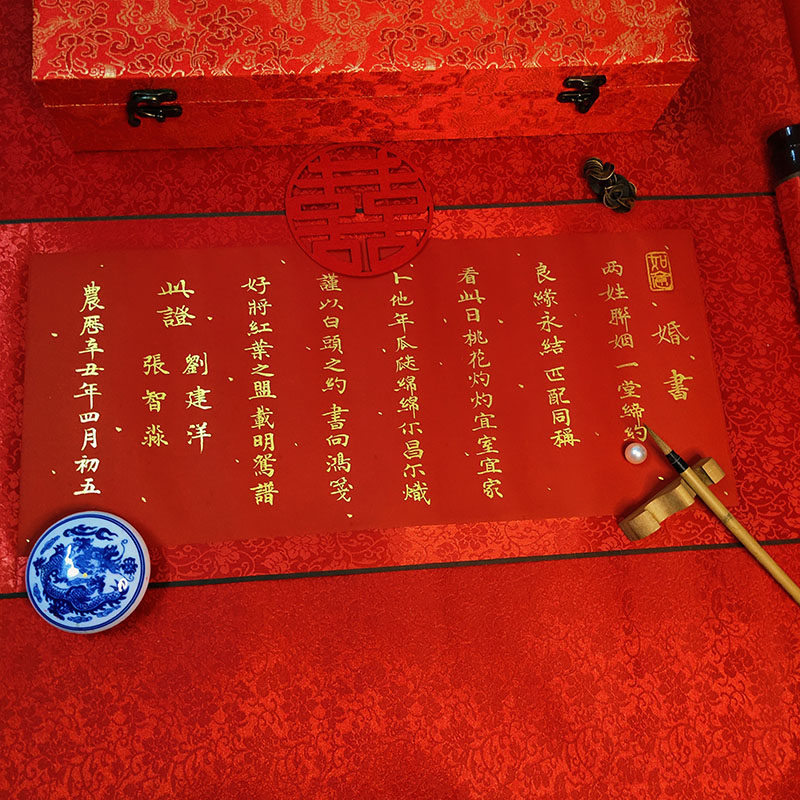 婚書
如意
两姓聯姻 一堂締約
良緣永結 匹配同稱
看此日桃花灼灼宜室宜家
卜他年瓜瓞綿綿尔昌尔熾
謹以白頭之約 書向鴻箋
好將紅葉之盟載明鴛譜
此證
劉建洋
張智淼
農歷辛丑年四月初五
囍